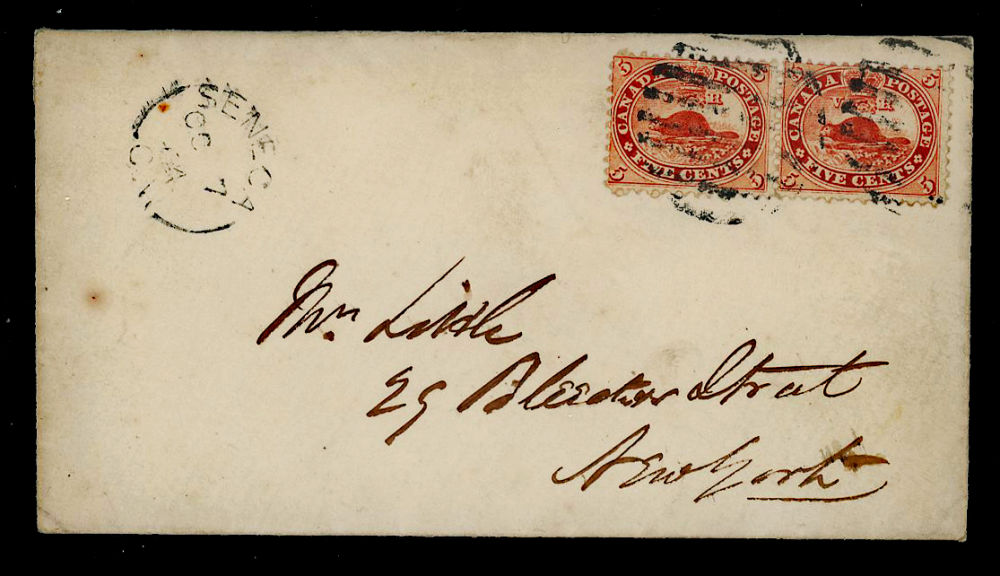 SENECA
OC 7
U.C.
5 CANADA POSTAGE 5
V R
5 FIVE CENTS 5
5 CANADA POSTAGE 5
V R
5 FIVE CENTS 5
Mrs Little
29 Bleecker Street
New York